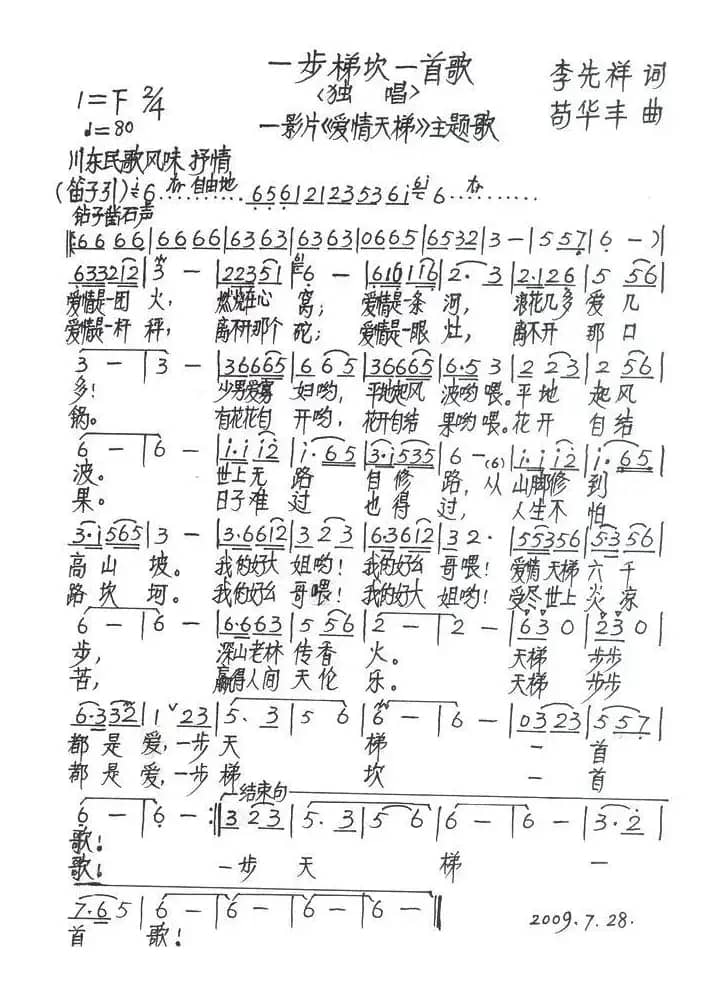 一步梯坎一首歌
〈独 唱〉
李先祥 词
苟华丰 曲
1=F 2/4
♩=80
—影片《爱情天梯》主题歌
川东民歌风味 抒情
(笛子引) i 6 ……… 自由地 6 5 6 1 2 1 2 3 5 3 6 i 6 ………
钻子凿石声
‖: 6 6 6 6 | 6 6 6 6 | 6 3 6 3 | 6 3 6 3 | 0 6 6 5 | 6 5 3 2 | 3 — | 5 5 7 | 6 — )
6 3 3 2 1 2 | 3 — | 2 2 3 5 1 | 6 — | 6 1 0 1 1 6 | 2· 3 | 2·1 2 6 | 5 5 6 |
爱情是一团 火, 燃烧在心 窝; 爱情是一条 河, 浪花几多 爱 几
爱情是一杆 秤, 离不开那个 砣; 爱情是一眼 灶, 离不开 那 口
3 — | 3 — | 3 6 6 6 5 | 6 6 5 | 3 6 6 6 5 | 6·5 3 | 2 2 3 | 2 5 6 |
多! 少男爱寡 妇哟, 平地起风 波哟喂。平地 起风
锅。 有花花自 开哟, 花开自结 果哟喂。花开 自结
6 — | 6 — | i·i i 2 | i· 6 5 | 3·i 5 3 5 | 6 —(6) | i·i i 2 | i· 6 5 |
波。 世上无 路 自 修 路,从 山脚修 到
果。 日子难 过 也 得 过, 人生不 怕
3·i 5 6 5 | 3 — | 3·6 6 1 2 | 3 2 3 | 6·3 6 1 2 | 3 2· | 5 5 3 5 6 | 5·3 5 6 |
高 山 坡。 我的好大 姐哟! 我的好么 哥喂! 爱情天梯 六 千
路 坎 坷。 我的好么 哥喂! 我的好大 姐哟! 受尽世上 炎 凉
6 — | 6 — | 6·6 6 3 | 5 5 6 | 2 — | 2 — | 6 3 0 | 2 3 0 |
步, 深山老林 传香 火。 天梯 步步
苦, 赢得人间 天伦 乐。 天梯 步步
6·3 3 2 | 1 2 3 | 5· 3 | 5 6 | 6 — | 6 — | 0 3 2 3 | 5 5 7 |
都 是 爱,一步 天 梯 一 首
都 是 爱,一步 梯 坎 一 首
结束句
6 — | 6 — :‖ 3 2 3 | 5· 3 | 5 6 | 6 — | 6 — | 3· 2 |
歌!
歌! 一步 天 梯 一
7·6 5 | 6 — | 6 — | 6 — | 6 — ‖
首 歌!
2009.7.28.